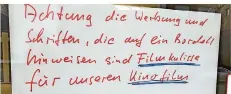 Achtung die Werbung und
Schriften, die auf ein Bordell
hinweisen sind Filmkulisse
für unseren Kinofilm